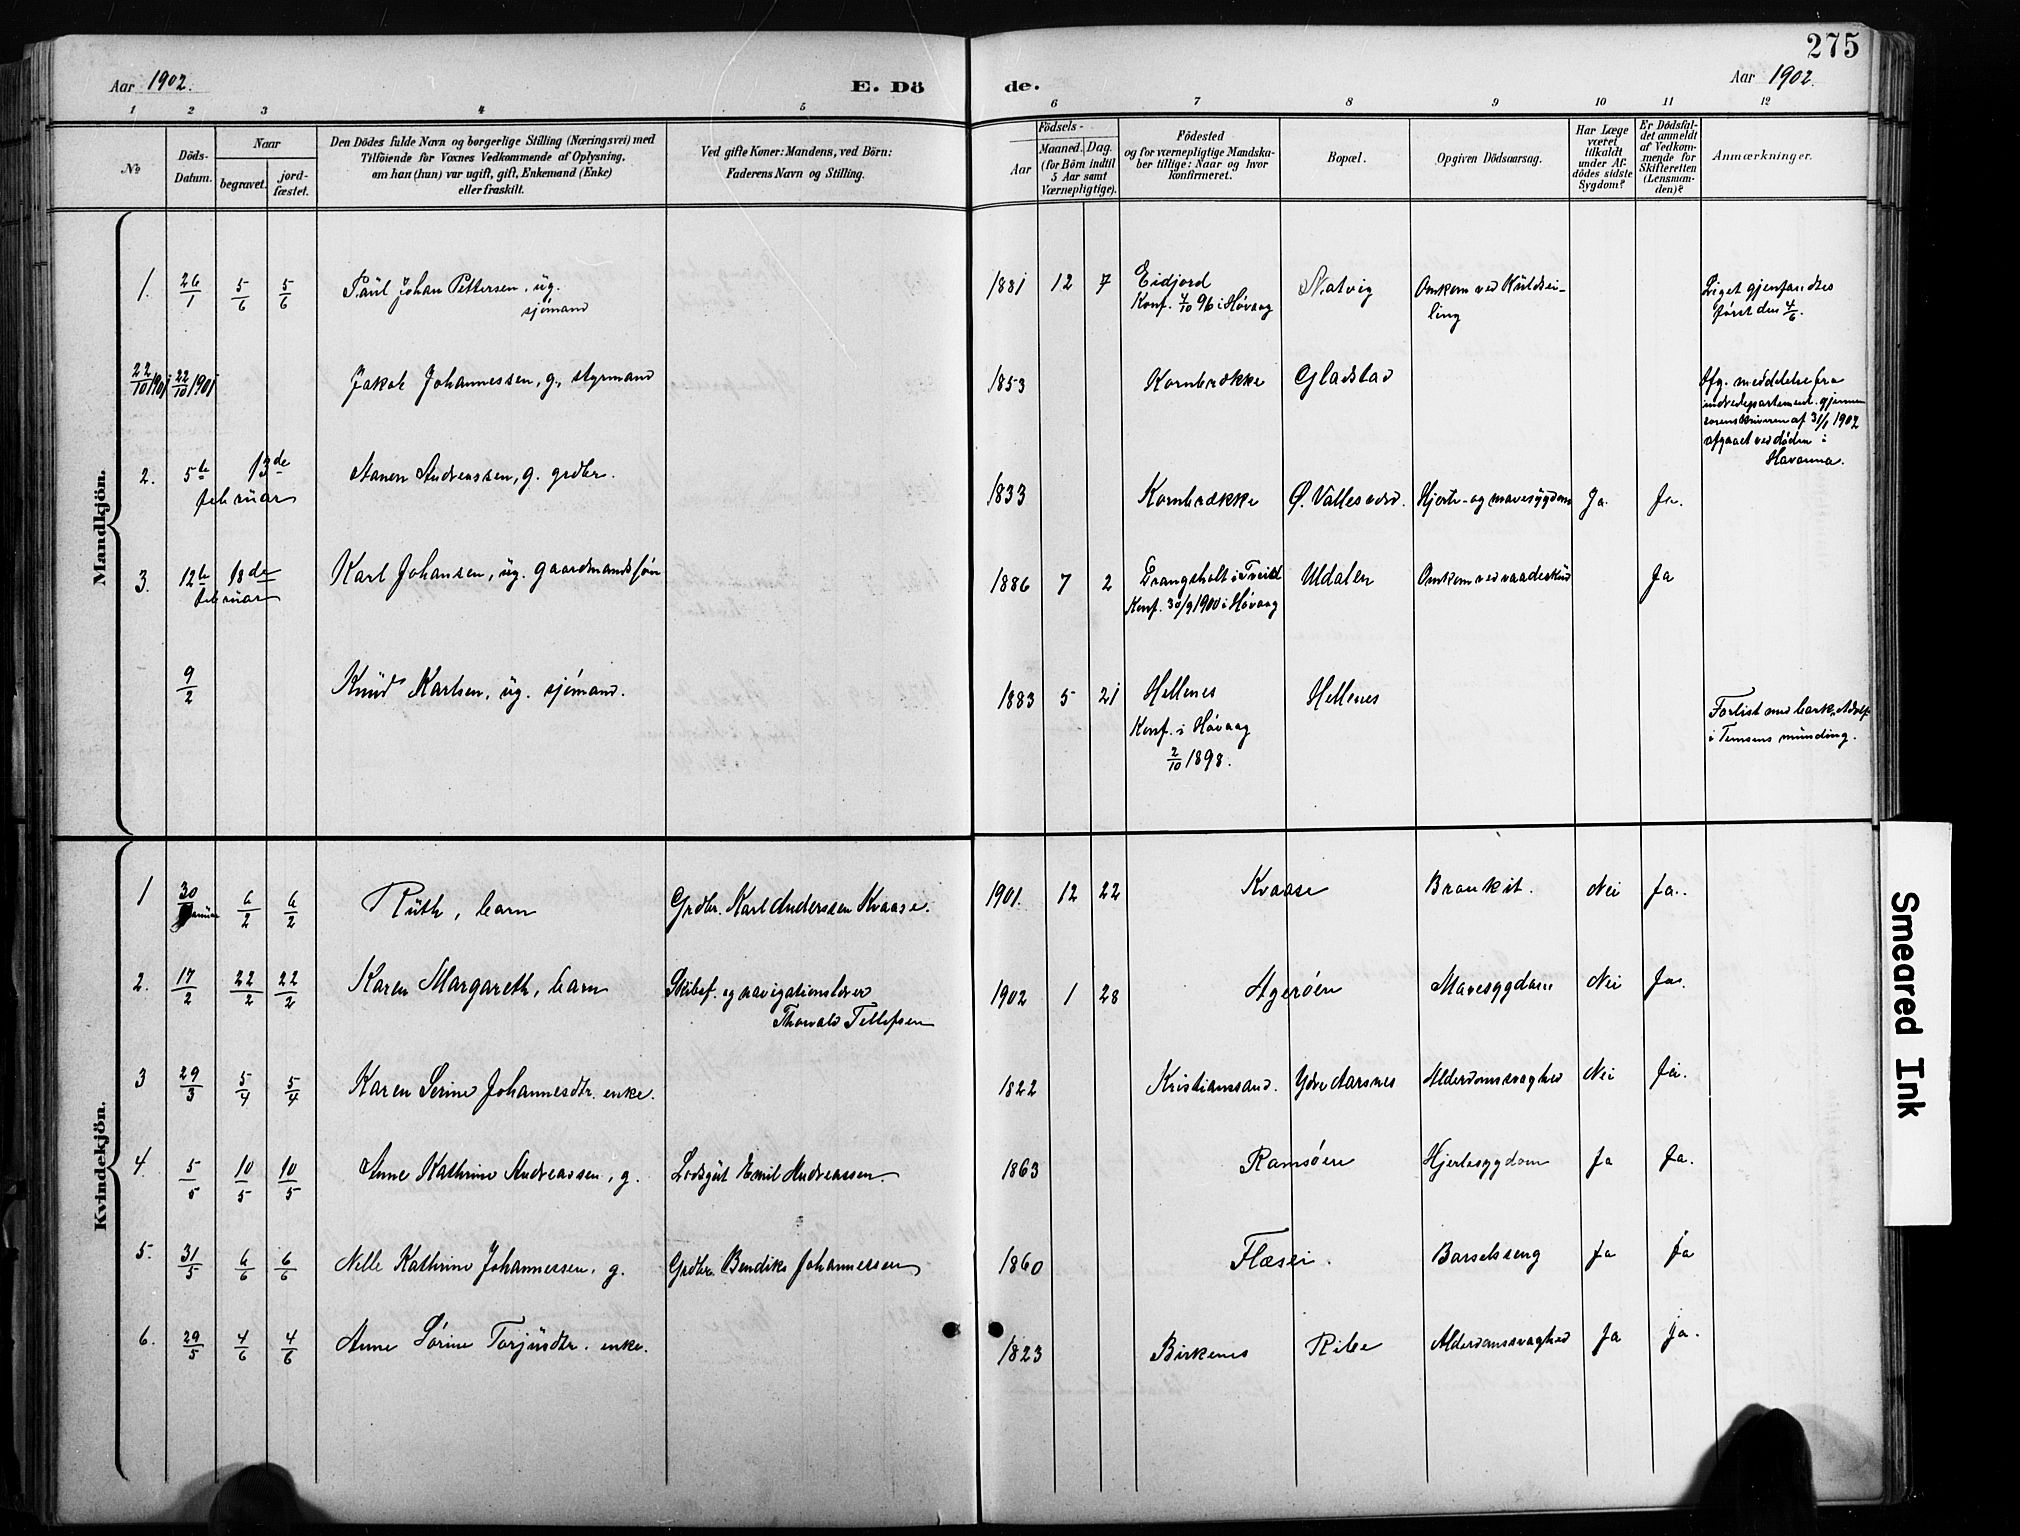 275
Aar 1902.
E. Dö
de.
Aar 1902.
1 2 3 4 5 6 7 8 9 10 11 12
No
Döds-
Datum.
Naar
begravet.
jord-
fæstet.
Den Dödes fulde Navn og borgerlige Stilling (Næringsvei) med
Tilföiende for Voxnes Vedkommende af Oplysning,
om han (hun) var ugift, gift, Enkemand (Enke)
eller fraskilt.
Ved gifte Koner: Mandens, ved Börn:
Faderens Navn og Stilling.
Födsels-
Aar
Maaned. Dag.
(for Börn indtil
5 Aar samt
Værnepligtige).
Födested
og for værnepligtige Mandska-
ber tillige: Naar og hvor
konfirmeret.
Bopæl.
Opgiven Dödsaarsag.
Har Læge
været
tilkaldt
under Af-
dödes sidste
Sygdom?
Er Dödsfal-
det anmeldt
af Vedkom-
mende for
Skifteretten
(Lensman-
den)?
Anmærkninger.
Mandkjön.
1. 26/1 5/6 5/6 Paul Johan Pettersen, ug.
sjømand
1881 12 7 Eidjord
Konf. 4/10 96 i Høvaag
Natvig
Omkom ved Kuldsei-
ling
Liget gjenfandtes
først den 4/6.
22/10 1901 22/10 1901 Jakob Johannessen, g., styrmand
1853 Kornbrække Gladstad
Ifg. meddelelse fra
indredepartement. gjennem
sorenskriveren af 31/1 1902
afgaaet ved døden i
Havanna.
2. 5te 13de
februar
Aanen Andreassen, g. grdbr.
1833 Kornbrække Ø. Vallesverd. Hjerte- og mavesygdom Ja. Ja.
3. 12te 18de
februar
Karl Johansen, ug. gaardmandssøn
1886 7 2 Drangsholt i Tveid
Konf. 30/9 1900 i Høvaag
Udalen Omkom ved vaadeskud Ja
9/2 Knud Karlsen, ug. sjømand.
1883 5 21 Hellenes
Konf. i Høvaag
2/10 1898.
Hellenes
Forlist med bark. Adolf
i Temsens munding.
Kvindekjön.
1 30/januar 6/2 6/2 Ruth, barn Grdbr. Karl Anderssen Kvaase. 1901. 12 22 Kvaase Bronkit. Nei Ja.
2. 17/2 22/2 22/2 Karen Margareth, barn Skibsf. og navigationslærer
Thorvald Tellefsen
1902 1 28 Agerøen Mavesygdom Nei Ja.
3 29/3 5/4 5/4 Karen Serine Johannesdtr. enke. 1822 Kristianssand. Ydre Aarsnes Alderdomssvaghed Nei Ja.
4. 5/5 10/5 10/5 Anne Kathrine Andreassen, g. Lodsgut Emil Andreassen. 1863 Ramsøen Hjertesygdom Ja Ja.
5. 31/5 6/6 6/6 Nelle Kathrine Johannessen, g. Grdbr. Bendiks Johannessen 1860 Flæsei. Barselseng Ja Ja
6. 29/5 4/6 4/6 Anne Sørine Torjusdtr. enke. 1823 Birkenes Ribe Alderdomssvaghed Ja Ja.
Smeared Ink